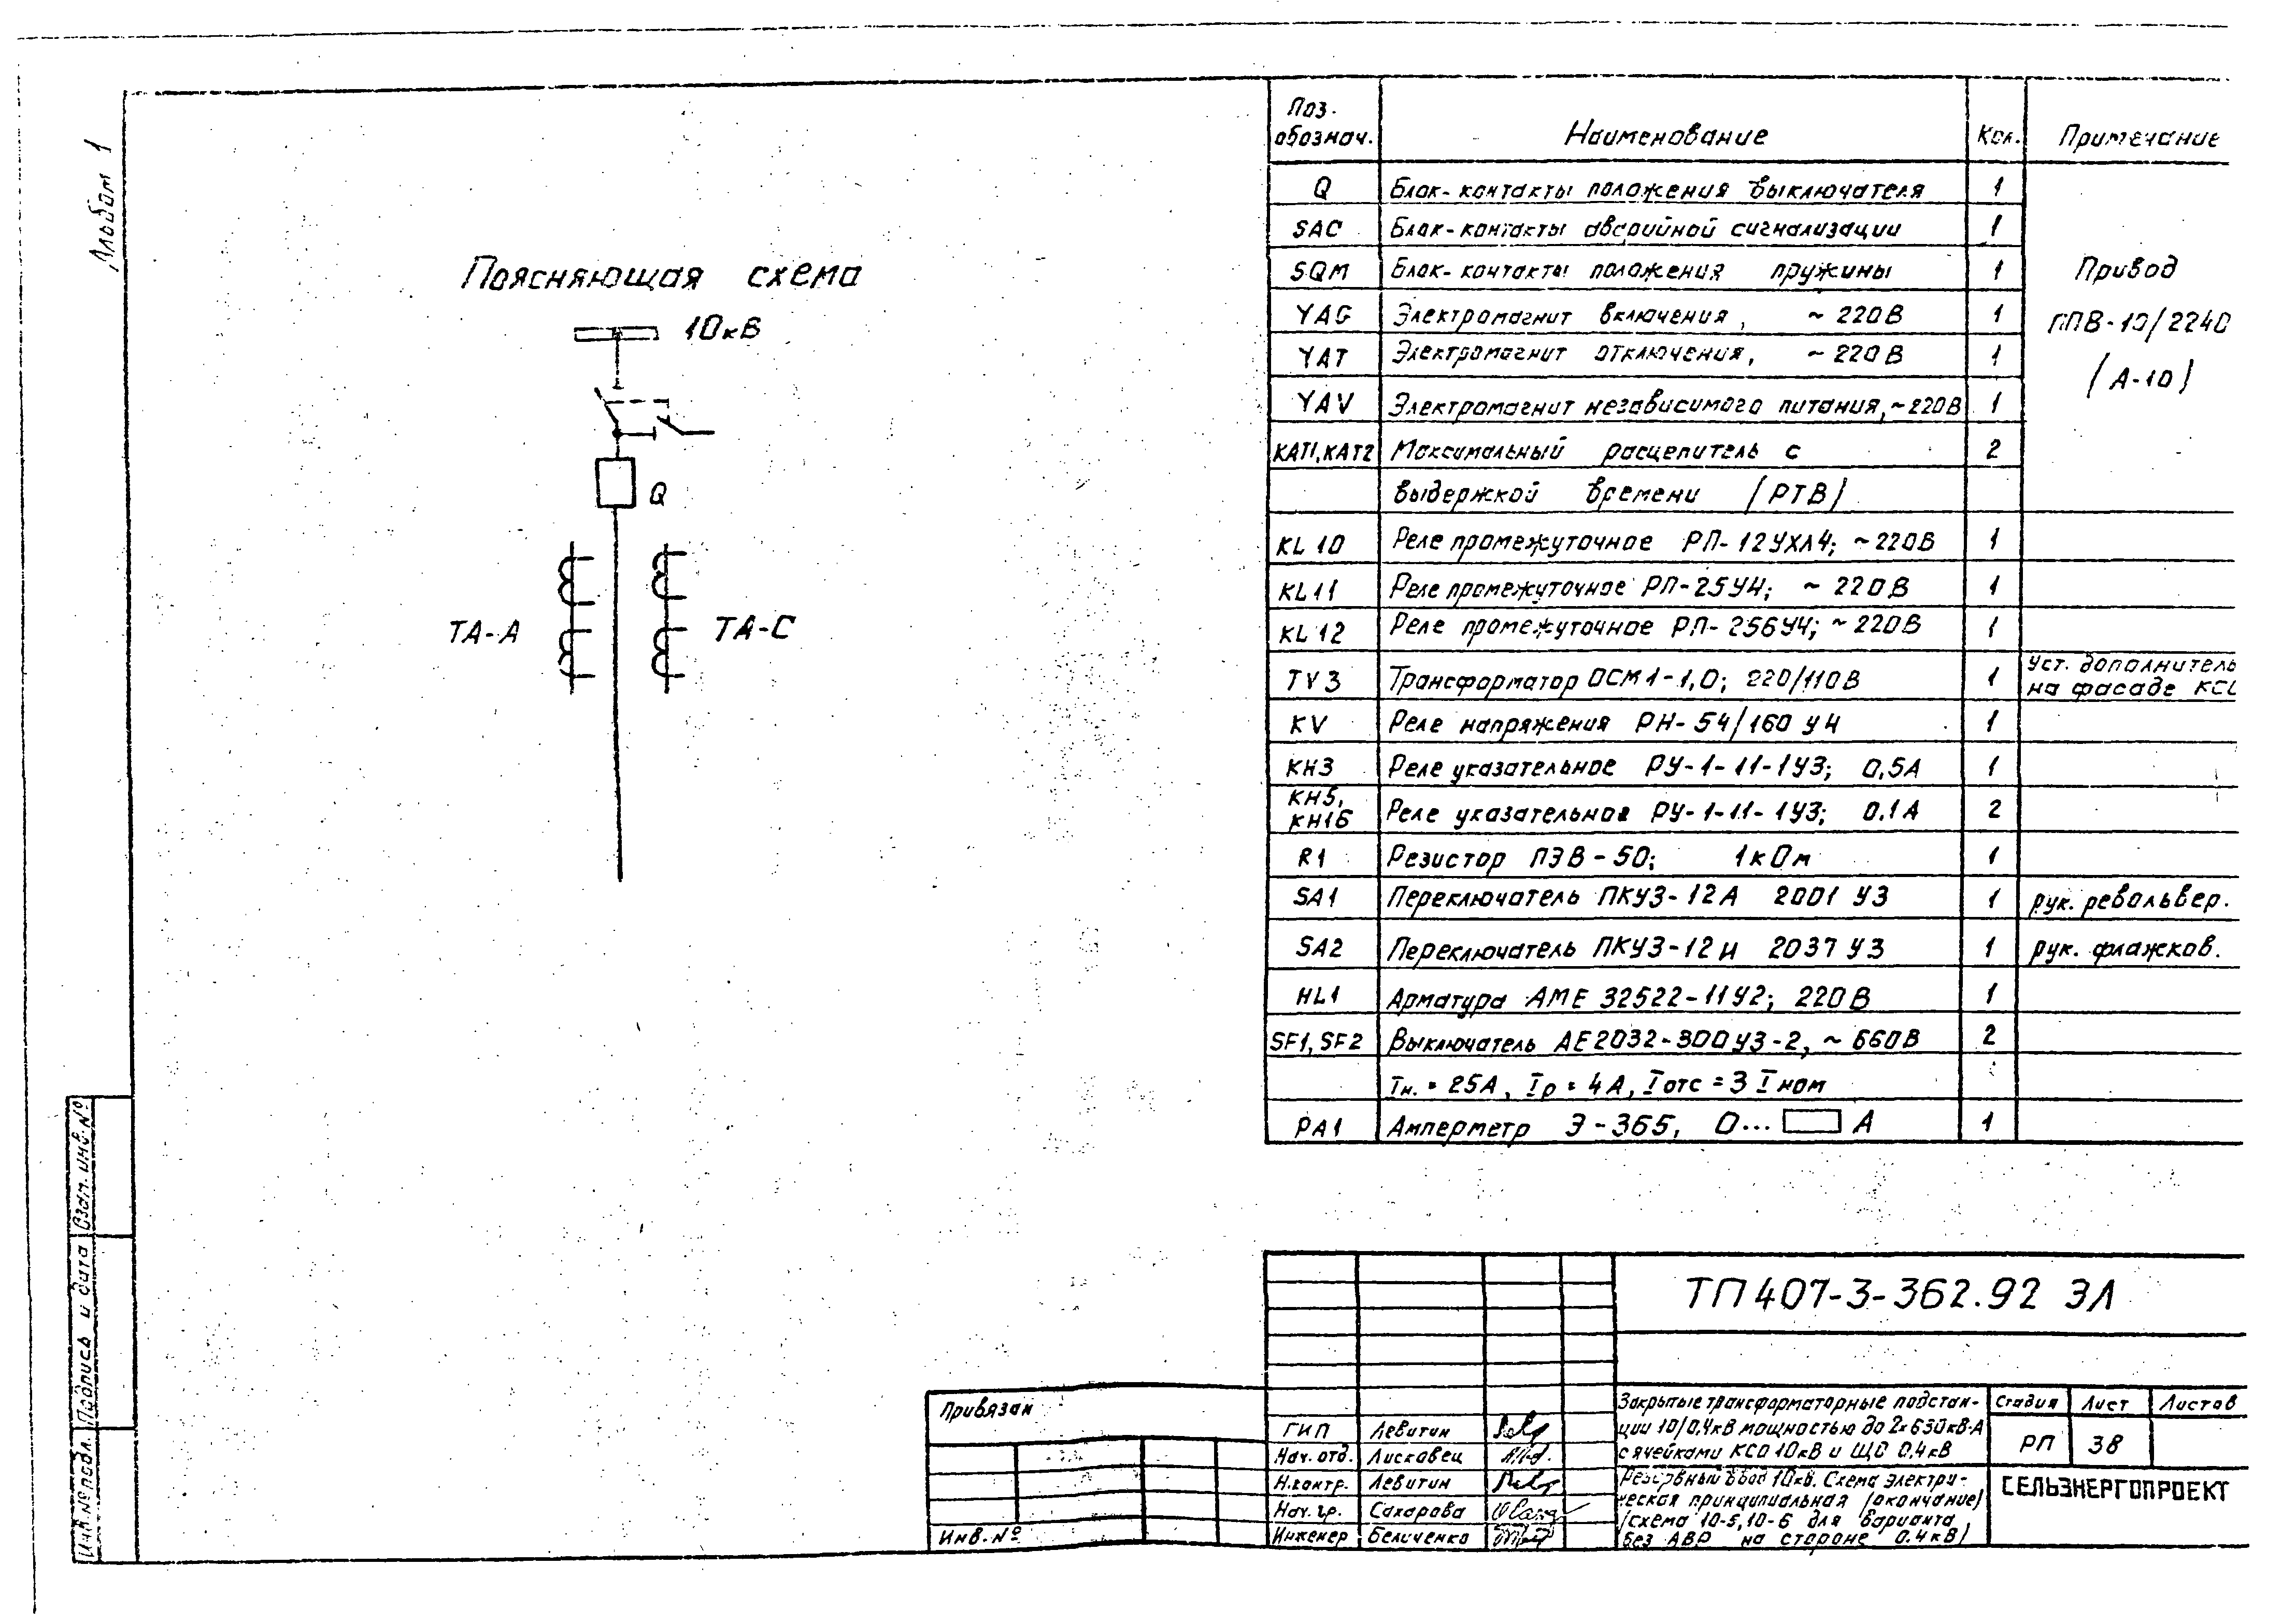 Альбом 1
Поясняющая схема
10кВ
Q
ТА-А
ТА-С
Поз. обознач. Наименование Кол. Примечание
Q Блок-контакты положения выключателя 1
SAC Блок-контакты аварийной сигнализации 1
SQM Блок-контакты положения пружины 1
YAC Электромагнит включения, ~220В 1
YAT Электромагнит отключения, ~220В 1
YAV Электромагнит независимого питания, ~220В 1
KAT1, KAT2 Максимальный расцепитель с 2
выдержкой времени (РТВ)
Привод
ППВ-10/2240
(А-10)
KL10 Реле промежуточное РП-12УХЛ4; ~220В 1
KL11 Реле промежуточное РП-25У4; ~220В 1
KL12 Реле промежуточное РП-256У4; ~220В 1
TV3 Трансформатор ОСМ1-1,0; 220/110В 1 Уст. дополнитель
на фасаде КСО
KV Реле напряжения РН-54/160 У4 1
KH3 Реле указательное РУ-1-11-1У3; 0,5А 1
KH5, KH16 Реле указательное РУ-1-11-1У3; 0.1А 2
R1 Резистор ПЭВ-50; 1кОм 1
SA1 Переключатель ПКУ3-12А 2001 У3 1 рук. револьвер.
SA2 Переключатель ПКУ3-12И 2037 У3 1 рук. флажков.
HL1 Арматура АМЕ 32522-11У2; 220В 1
SF1, SF2 Выключатель АЕ2032-300У3-2, ~660В 2
Iн. = 25А, Iр = 4А, Iотс = 3 Iном
PA1 Амперметр Э-365, 0... А 1
ТП 407-3-362.92 ЭЛ
Привязан
Инв. №
ГИП Левитин
Нач. отд. Лисковец
Н.контр. Левитин
Нач. гр. Сахарова
Инженер Беличенко
Закрытые трансформаторные подстан-
ции 10/0,4кВ мощностью до 2×630кВ·А
с ячейками КСО 10кВ и ЩО 0,4кВ
Стадия Лист Листов
РП 38
Резервный ввод 10кв. Схема электри-
ческая принципиальная (окончание)
(схема 10-5, 10-6 для варианта
без АВР на стороне 0.4кВ)
СЕЛЬЭНЕРГОПРОЕКТ
Взам. инв. №
Подпись и дата
Инв. № подл.